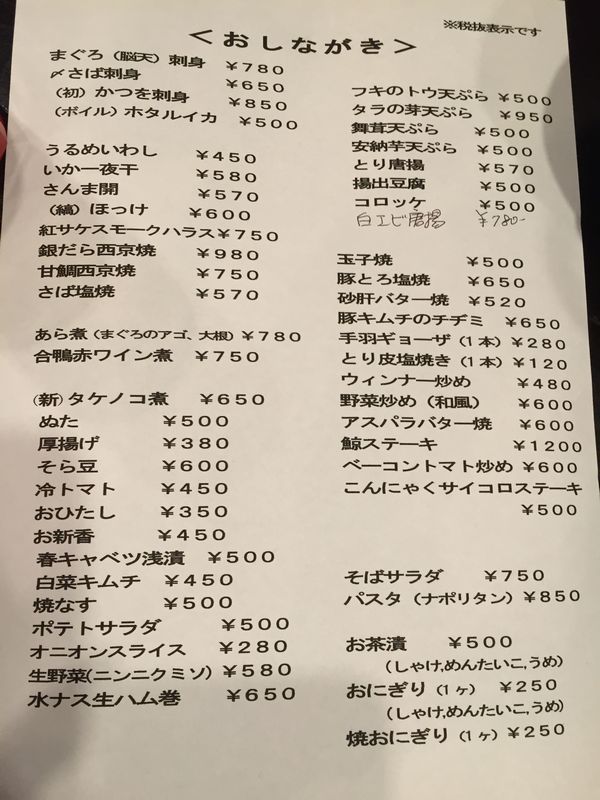 ※税抜表示です
＜おしながき＞
まぐろ（脳天）刺身 ￥780
〆さば刺身 ￥650
（初）かつを刺身 ￥850
（ボイル）ホタルイカ ￥500
うるめいわし ￥450
いか一夜干 ￥580
さんま開 ￥570
（縞）ほっけ ￥600
紅サケスモークハラス￥750
銀だら西京焼 ￥980
甘鯛西京焼 ￥750
さば塩焼 ￥570
あら煮（まぐろのアゴ、大根）￥780
合鴨赤ワイン煮 ￥750
（新）タケノコ煮 ￥650
ぬた ￥500
厚揚げ ￥380
そら豆 ￥600
冷トマト ￥450
おひたし ￥350
お新香 ￥450
春キャベツ浅漬 ￥500
白菜キムチ ￥450
焼なす ￥500
ポテトサラダ ￥500
オニオンスライス ￥280
生野菜（ニンニクミソ）￥580
水ナス生ハム巻 ￥650
フキのトウ天ぷら ￥500
タラの芽天ぷら ￥950
舞茸天ぷら ￥500
安納芋天ぷら ￥500
とり唐揚 ￥570
揚出豆腐 ￥500
コロッケ ￥500
白エビ唐揚 ￥780-
玉子焼 ￥500
豚とろ塩焼 ￥650
砂肝バター焼 ￥520
豚キムチのチヂミ ￥650
手羽ギョーザ（1本）￥280
とり皮塩焼き（1本）￥120
ウィンナー炒め ￥480
野菜炒め（和風） ￥600
アスパラバター焼 ￥600
鯨ステーキ ￥1200
ベーコントマト炒め ￥600
こんにゃくサイコロステーキ
￥500
そばサラダ ￥750
パスタ（ナポリタン）￥850
お茶漬 ￥500
（しゃけ,めんたいこ,うめ）
おにぎり（1ヶ） ￥250
（しゃけ,めんたいこ,うめ）
焼おにぎり（1ヶ）￥250